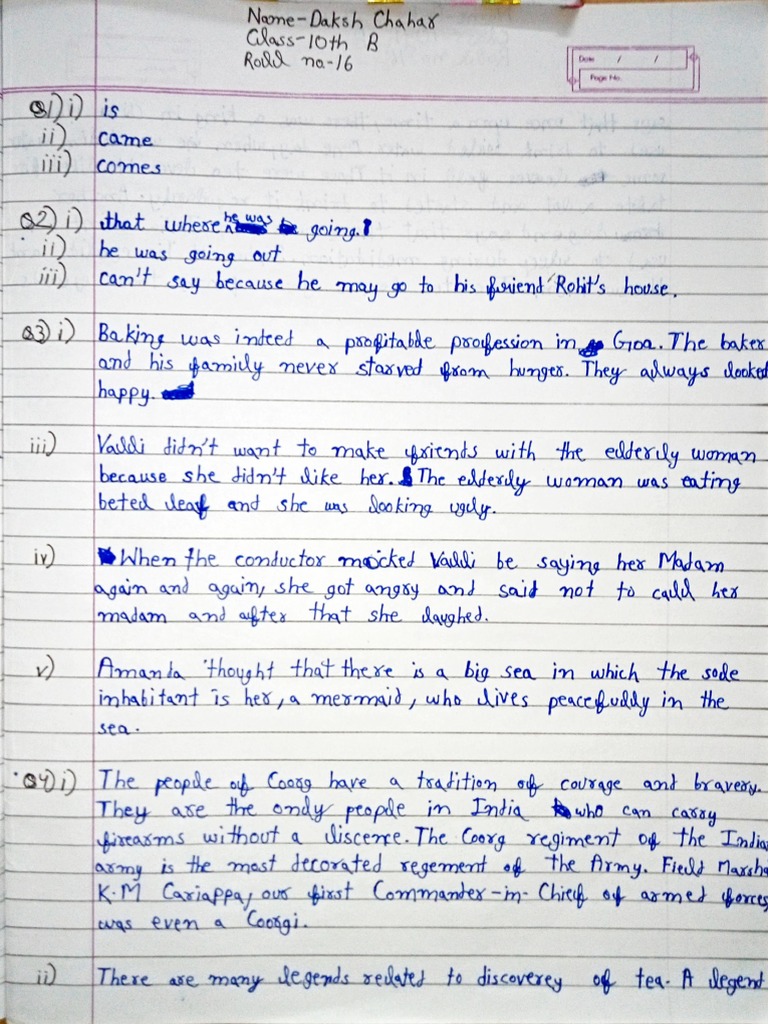 Name-Daksh Chahar
Class-10th B
Roll no-16
Date / /
Page No.
Q1) i) is
ii) came
iii) comes
Q2) i) that where he was going.
ii) he was going out
iii) can't say because he may go to his friend Rohit's house.
Q3) i) Baking was indeed a profitable profession in Goa. The baker
and his family never starved from hunger. They always looked
happy.
iii) Valli didn't want to make friends with the elderly woman
because she didn't like her. The elderly woman was eating
betel leaf and she was looking ugly.
iv) When the conductor mocked Valli be saying her Madam
again and again, she got angry and said not to call her
madam and after that she laughed.
v) Amanda thought that there is a big sea in which the sole
inhabitant is her, a mermaid, who lives peacefully in the
sea.
Q4) i) The people of Coorg have a tradition of courage and bravery.
They are the only people in India who can carry
firearms without a liscence. The Coorg regiment of the India
army is the most decorated regement of the Army. Field Marsha
K.M Cariappa, our first Commander-in-Chief of armed forces
was even a Coorgi.
ii) There are many legends related to discoverey of tea. A legend